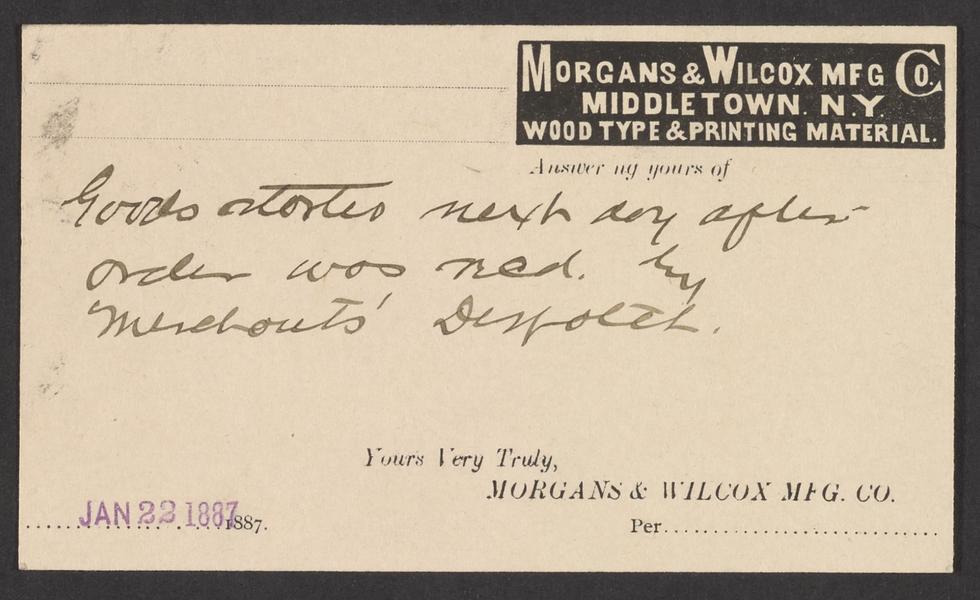 MORGANS & WILCOX MFG CO.
MIDDLETOWN. N.Y.
WOOD TYPE & PRINTING MATERIAL.
Answer ng yours of
Goods started next day after
order was recd. by
Merchants' Despatch.
Yours Very Truly,
MORGANS & WILCOX MFG. CO.
JAN 22 1887 1887.
Per